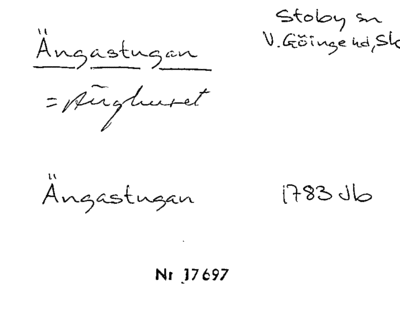 Stoby sn
Ängastugan
V. Göinge hd, Sk
= Änghuset
Ängastugan
1783 Jb
Nr 17697